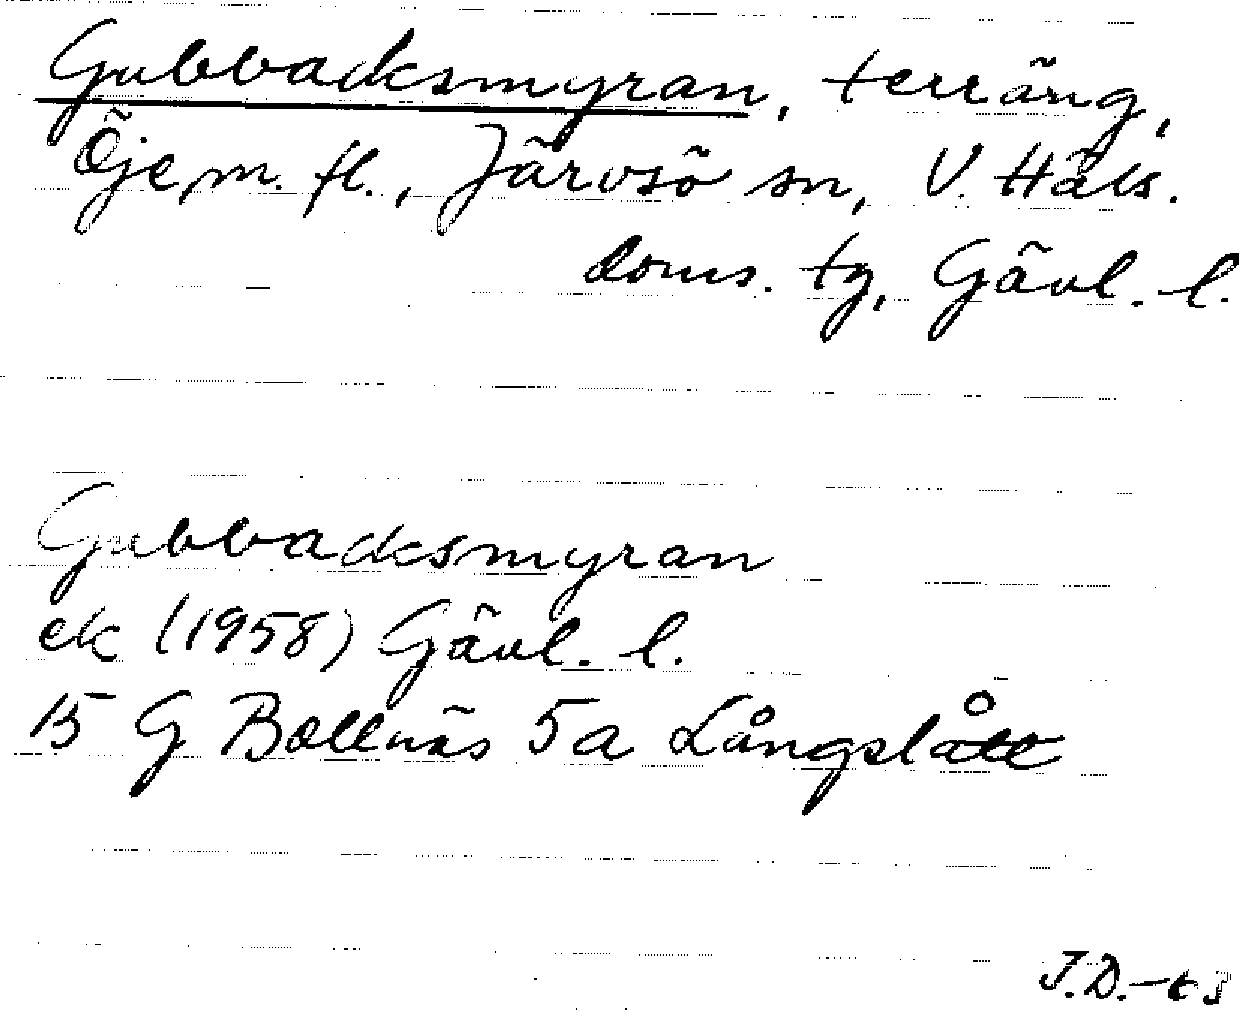 Gubbacksmyran, terräng,
Öje, m. fl., Järvsö sn, V. Häls.
doms. tg, Gävl. l.
Gubbacksmyran
ek (1958) Gävl. l.
15 G Bollnäs 5a Långslått
J.D.-63